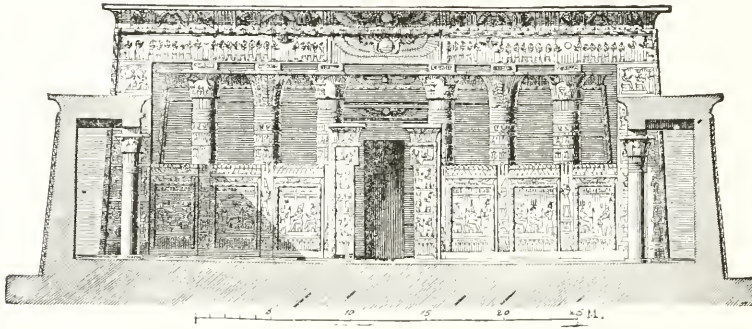 5 10 15 20 25 M.